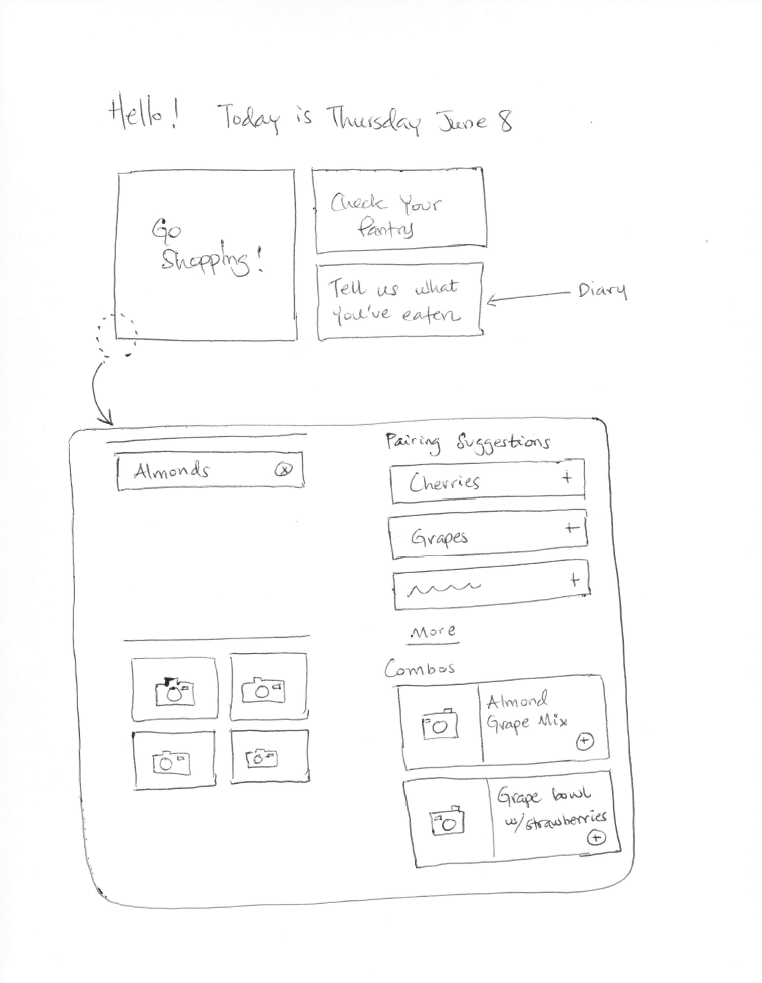 Hello! Today is Thursday June 8
Go
Shopping!
Check Your
Pantry
Tell us what
you've eaten
Diary
Almonds
Pairing Suggestions
Cherries
Grapes
More
Combos
Almond
Grape Mix
Grape bowl
w/strawberries